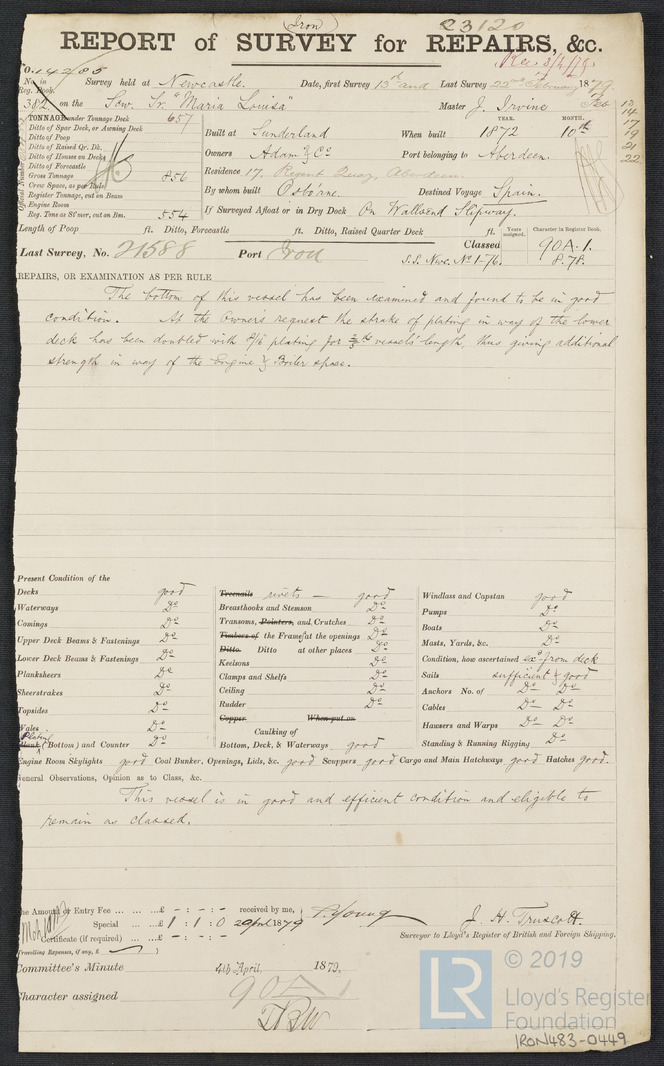 (Iron)
23120
REPORT of SURVEY for REPAIRS, &c.
Rec 3/4/79
No. 14285
No. in Reg. Book. Survey held at Newcastle. Date, first Survey 13th and Last Survey 22nd February 1879.
382 on the Scw. Sr. "Maria Louisa" Master J. Irvine
Feb 13
14
17
19
21
22
TONNAGE under Tonnage Deck 657
Ditto of Spar Deck, or Awning Deck
Ditto of Poop
Ditto of Raised Qr. Dk.
Ditto of Houses on Decks
Ditto of Forecastle
Gross Tonnage 856
Crew Space, as per Rule
Register Tonnage, cut on Beam
Engine Room
Reg. Tons as St'mer, cut on Bm. 554
Official Number
Built at Sunderland When built YEAR. 1872 MONTH. 10th
Owners Adam & Co Port belonging to Aberdeen.
Residence 17. Regent Quay, Aberdeen.
By whom built Osbo'ane. Destined Voyage Spain.
If Surveyed Afloat or in Dry Dock On Wallsend Slipway.
Length of Poop ft. Ditto, Forecastle ft. Ditto, Raised Quarter Deck ft.
Years assigned. Character in Register Book.
Last Survey, No. 21588 Port Iron Classed 90A.1.
S.S. Nwc. No 1-76. 8.78.
REPAIRS, OR EXAMINATION AS PER RULE
The bottom of this vessel has been examined and found to be in good
condition. At the Owner's request the strake of plating in way of the lower
deck has been doubled with plating for 3/5ths vessels' length, thus giving additional
strength in way of the Engine & Boiler space.
Present Condition of the
Decks good
Waterways Do
Comings Do
Upper Deck Beams & Fastenings Do
Lower Deck Beams & Fastenings Do
Planksheers Do
Sheerstrakes Do
Topsides Do
Wales Do
Plating
Plank (Bottom) and Counter Do
Treenails rivets — good
Breasthooks and Stemson Do
Transoms, Pointers, and Crutches Do
Timbers of the Frames at the openings Do
Ditto. Ditto at other places Do
Keelsons Do
Clamps and Shelfs Do
Ceiling Do
Rudder Do
Copper When put on
Caulking of
Bottom, Deck, & Waterways good
Windlass and Capstan good
Pumps Do
Boats Do
Masts, Yards, &c. Do
Condition, how ascertained exd from deck
Sails sufficient & good
Anchors No. of Do Do
Cables Do Do
Hawsers and Warps Do Do
Standing & Running Rigging Do
Engine Room Skylights good Coal Bunker, Openings, Lids, &c. good Scuppers good Cargo and Main Hatchways good Hatches good.
General Observations, Opinion as to Class, &c.
This vessel is in good and efficient condition and eligible to
remain as classed.
The Amount of Entry Fee ... ... ...£ - : - : - received by me, P. Young
Special ... ...£ 1 : 1 : 0 2 April 1879 J. H. Truscott.
Certificate (if required) ... ...£ - : - : - Surveyor to Lloyd's Register of British and Foreign Shipping.
Travelling Expenses, if any, £
Committee's Minute 4th April, 1879.
Character assigned 90A1
TBW
LR
© 2019
Lloyd's Register
Foundation
IRON483-0449